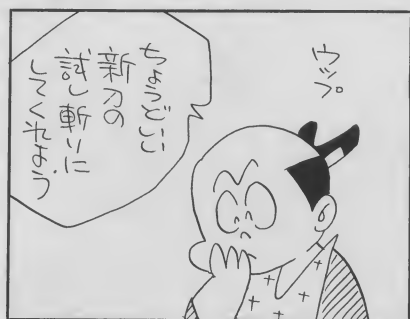 ウップ
ちょうどいい
新刀の
試し斬りに
してくれよう